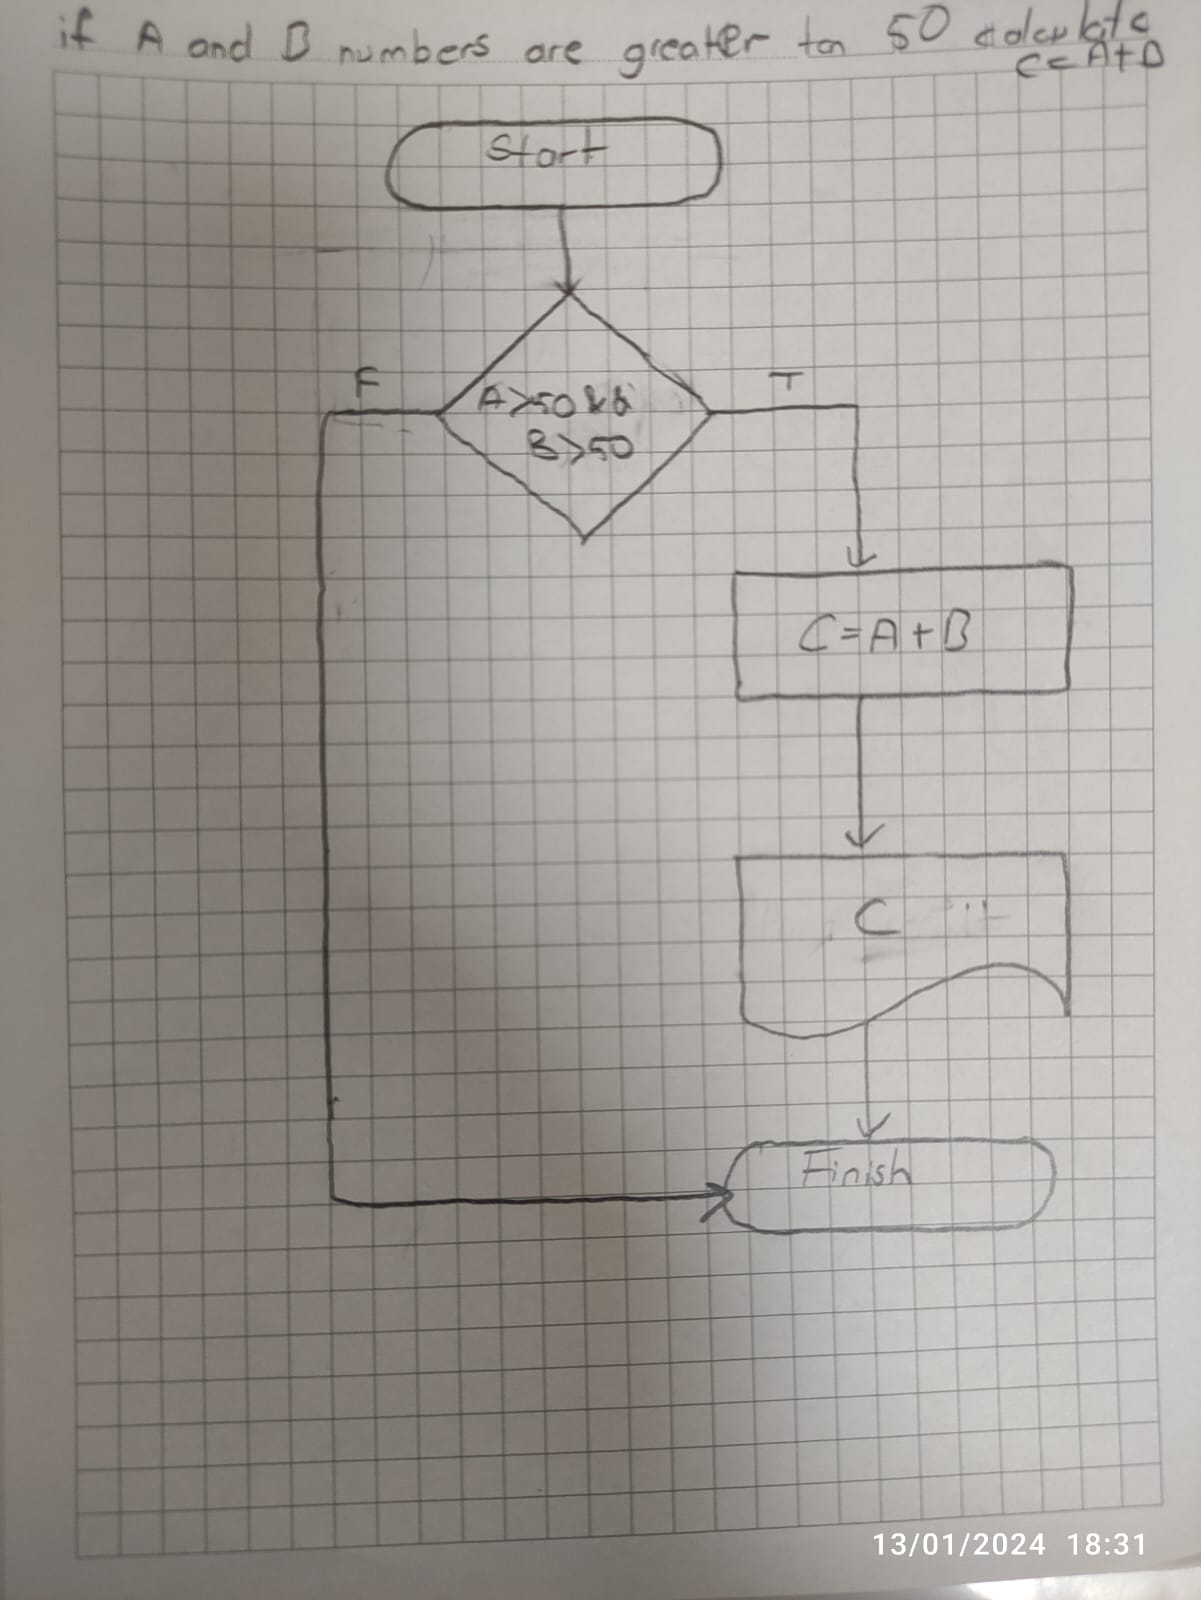 if A and B numbers are greater tan 50 calculate
C = A+B
Start
F
T
A>50 &&
B>50
C=A+B
C
Finish
13/01/2024 18:31